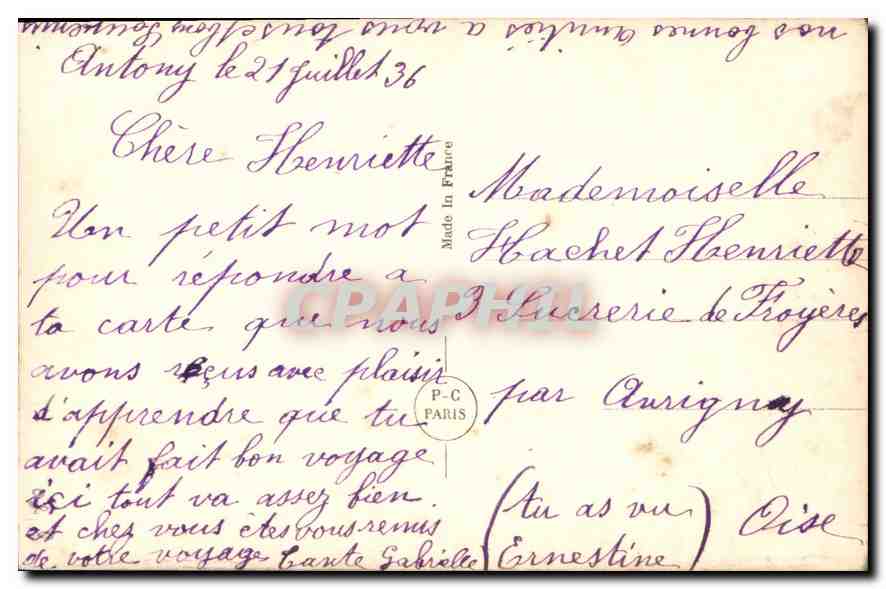 nos bonnes amitiés a vous tous et bons souvenirs
Antony le 21 juillet 36
Chère Henriette
Un petit mot
pour répondre a
ta carte que nous
avons reçus avec plaisir
d'apprendre que tu
avait fait bon voyage
içi tout va assez bien
et chez vous êtes vous remis
de votre voyage Tante Gabrielle
(tu as vu
Ernestine)
Made In France
P-C
PARIS
Mademoiselle
Hachet Henriette
3 Sucrerie de Froyères
par Avrigny
Oise
CPAPHIL